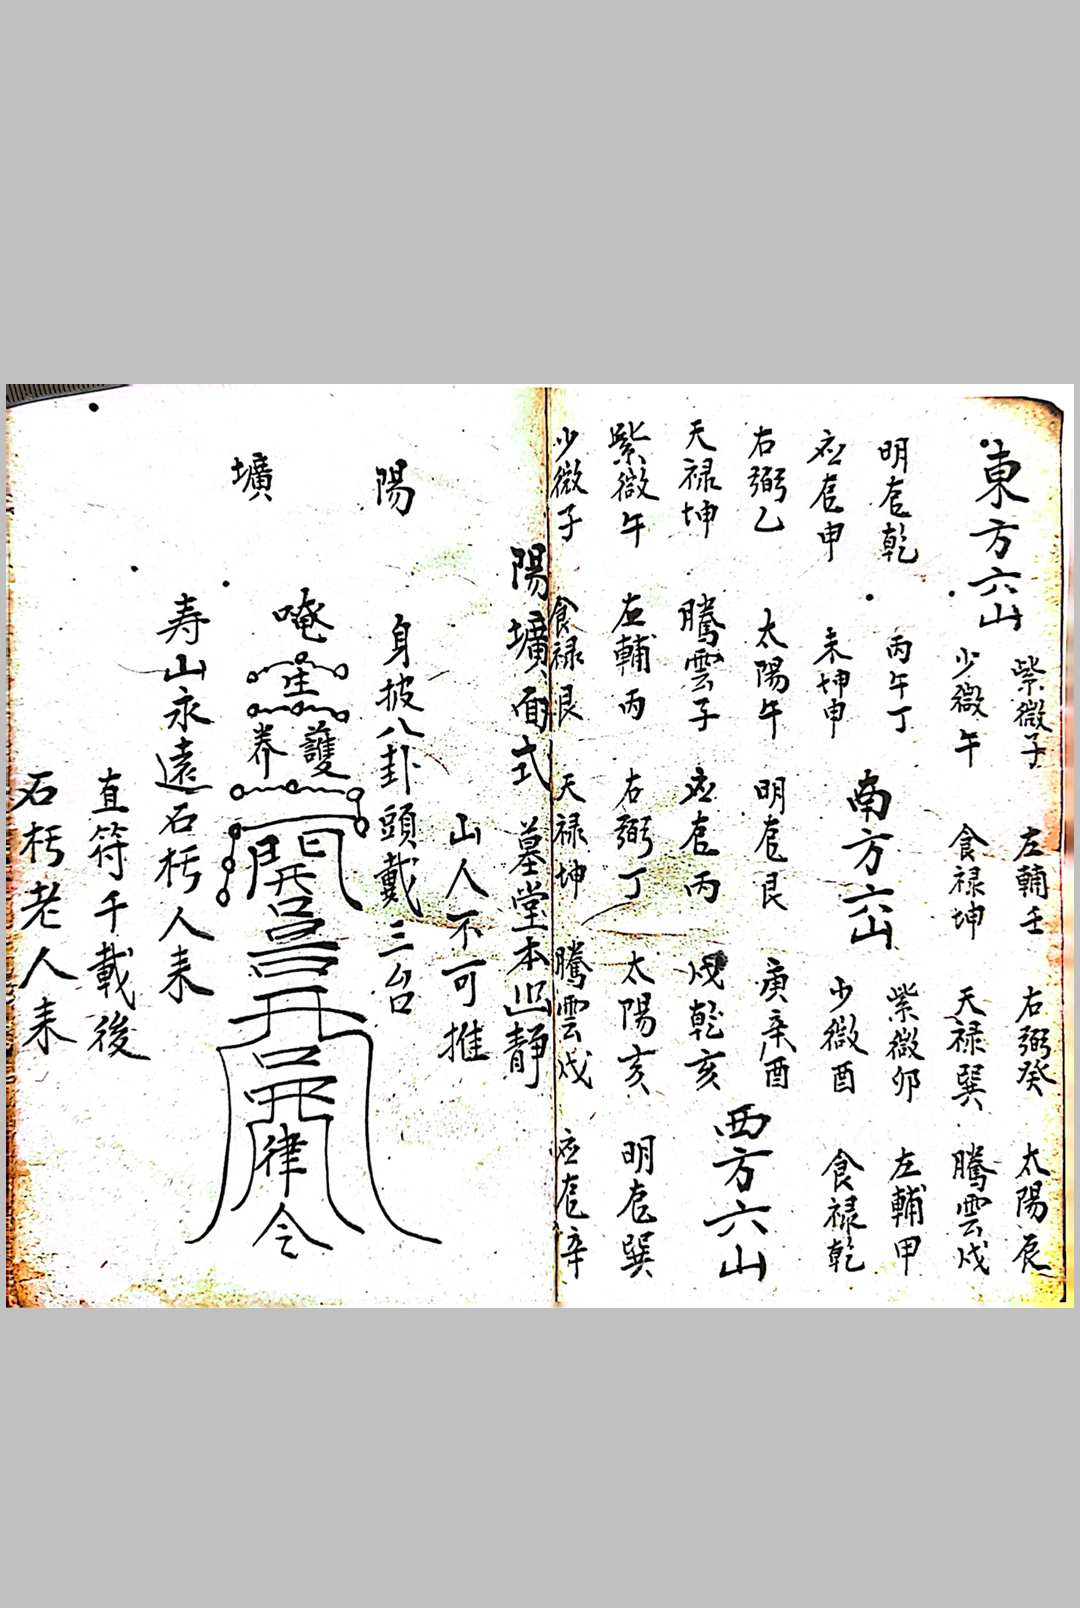 東方六山
紫微子 左輔壬 右弼癸 太陽辰
少微午 食禄坤 天禄巽 騰雲戌
明乾 丙午丁
紫微卯 左輔甲
申 未坤申
南方六山
少微酉 食禄乾
右弼乙 太陽午 明艮 庚辛酉
西方六山
天禄坤 騰雲子 丙 戌乾亥
紫微午 左輔丙 右弼丁 太陽亥 明巽
少微子 食禄艮 天禄坤 騰雲戌 辛
陽壙面式 墓堂本静
山人不可推
陽 身披八卦頭戴三台
壙
唵
生
養護
開
律
令
寿山永遠石朽人来
直符千載後
石朽老人来